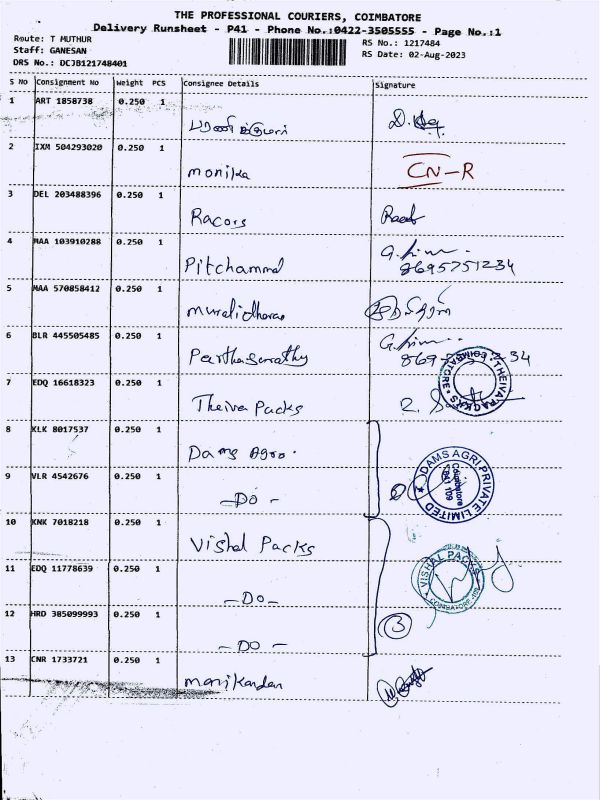 THE PROFESSIONAL COURIERS, COIMBATORE
Delivery Runsheet - P41 - Phone No.:0422-3505555 - Page No.:1
Route: T MUTHUR
RS No.: 1217484
Staff: GANESAN
RS Date: 02-Aug-2023
DRS No.: DCJB121748401
S No Consignment No Weight PCS Consignee Details Signature
1 ART 1858738 0.250 1
2 IXM 504293020 0.250 1 monika CN-R
3 DEL 203488396 0.250 1 Racors
4 MAA 103910288 0.250 1 Pitchammal
8695751234
5 MAA 570858412 0.250 1 muralidharan
6 BLR 445505485 0.250 1 Parthasarathy
7 EDQ 16618323 0.250 1 Theiva Packs
THEIVA PACKS COIMBATORE
8 KLK 8017537 0.250 1 Dams Agro.
9 VLR 4542676 0.250 1 -DO-
DAMS AGRI PRIVATE LIMITED
Coimbatore
10 KNK 7018218 0.250 1 Vishal Packs
11 EDQ 11778639 0.250 1 -DO-
VISHAL PACKS
12 HRD 385099993 0.250 1 -DO- 3
13 CNR 1733721 0.250 1 manikandan